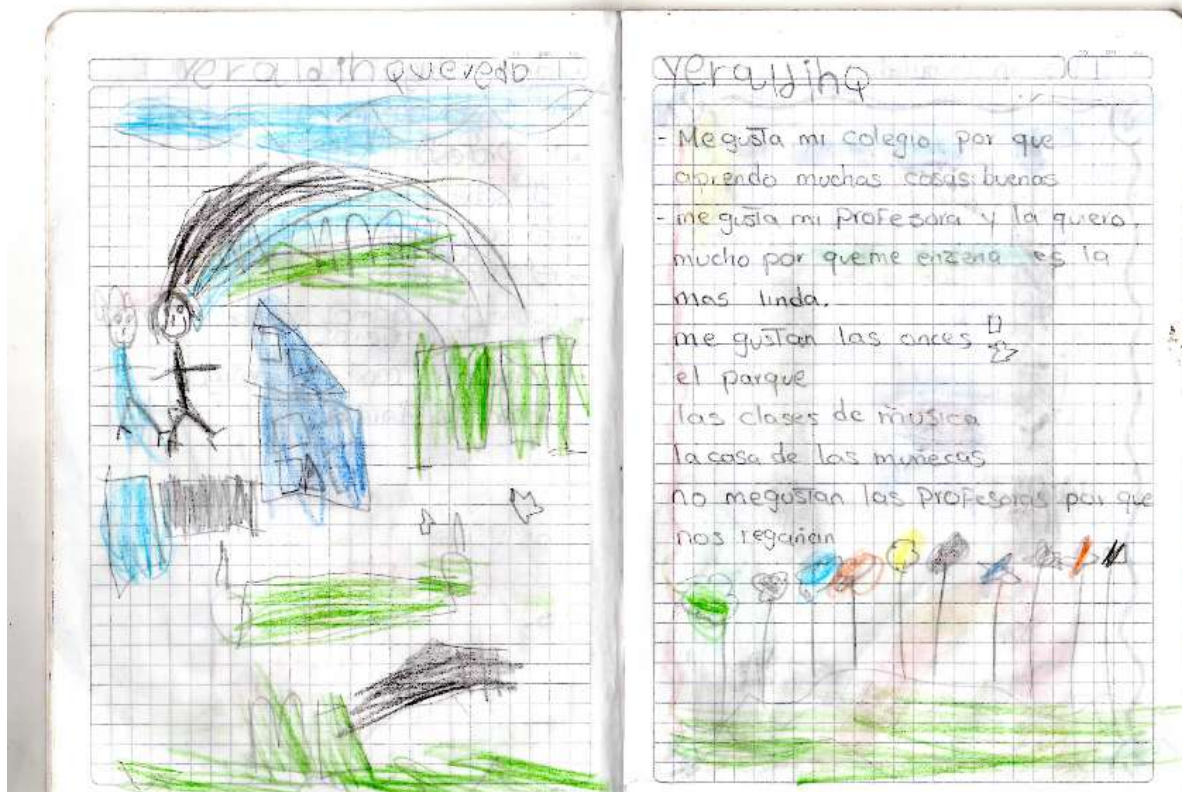 Yeraldin Quevedo
Yeraldin Q
- Me gusta mi colegio por que
aprendo muchas cosas buenas
- me gusta mi profesora y la quiero
mucho por que me enzeña es la
mas linda.
me gustan las onces
el parque
las clases de musica
la casa de las muñecas
no me gustan las profesoras por que
nos regañan